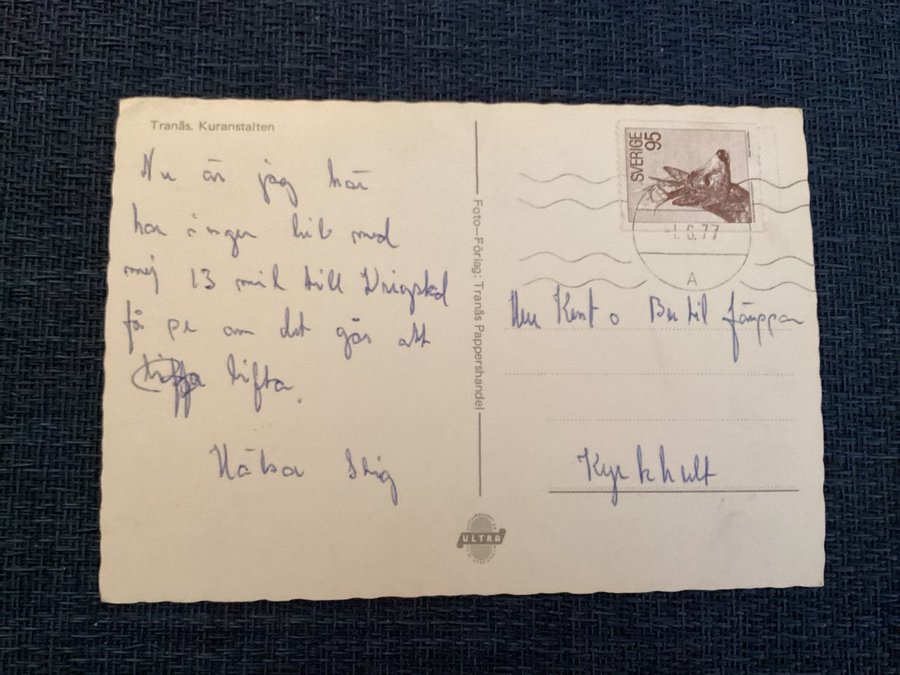 Tranås. Kuranstalten
Nu är jag här
har ingen bil med
mej 13 mil till
få se om det går att
lifta.
Hälsar Stig
Foto-Förlag: Tranås Pappershandel
ULTRA
SVERIGE 95
-1.6.77
A
Herr Kent o Bertil
Kyrkhult